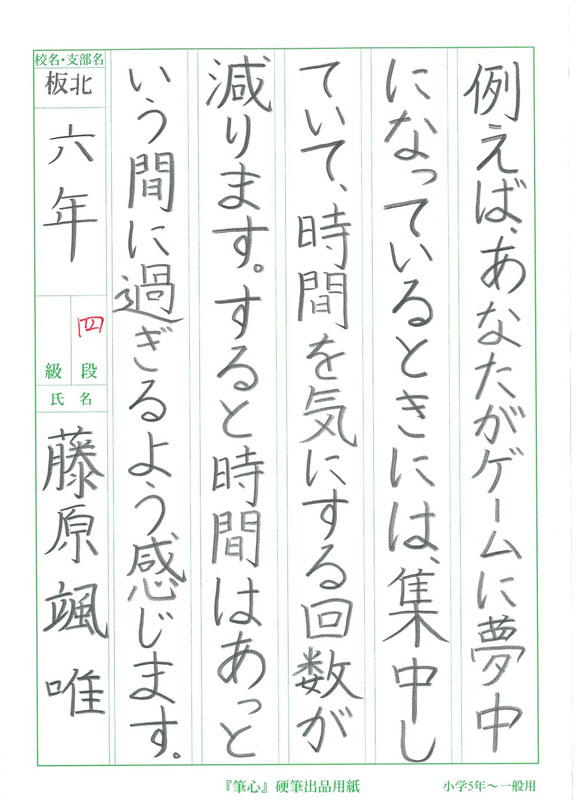 例えば、あなたがゲームに夢中
になっているときには、集中し
ていて、時間を気にする回数が
減ります。すると時間はあっと
いう間に過ぎるよう感じます。
校名・支部名
板北
六年
四段
級
氏名
藤原颯唯
『筆心』硬筆出品用紙
小学5年～一般用